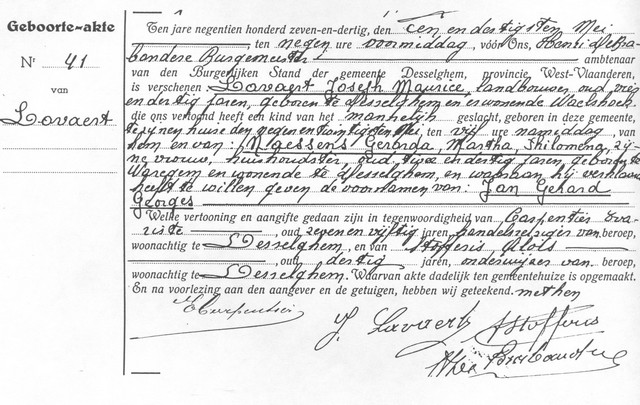 Geboorte=akte
Nr 41
van
Lovaert
Ten jare negentien honderd zeven-en-dertig, den een en dertigsten Mei
ten negen ure voormiddag, vóór Ons, Henri De Bra-
bandere Burgemeester ambtenaar
van den Burgerlijken Stand der gemeente Desselghem, provincie West-Vlaanderen,
is verschenen: Lovaert Joseph Maurice, landbouwer, oud vier
en dertig jaren, geboren te Desselghem en wonende
die ons vertoond heeft een kind van het manlijk geslacht, geboren in deze gemeente,
te zijnen huize den negen en twintigsten Mei, ten vijf ure namiddag, van
hem en van: Goessens Gerarda, Martha, Philomena, zij-
ne vrouw, huishoudster, oud, twee en dertig jaren, geboren te
Waregem en wonende te Desselghem, en waaraan hij verklaard
heeft te willen geven de voornamen van: Jan Gehard
Georges
Welke vertooning en aangifte gedaan zijn in tegenwoordigheid van Carpentier Eva-
riste, oud zeven en vijftig jaren, van beroep,
woonachtig te Desselghem, en van Stofferis Alois
, oud dertig jaren, onderwijzer van beroep,
woonachtig te Desselghem. Waarvan akte dadelijk ten gemeentehuize is opgemaakt.
En na voorlezing aan den aangever en de getuigen, hebben wij geteekend. met hen
E Carpentier
J. Lovaert
A Stofferis